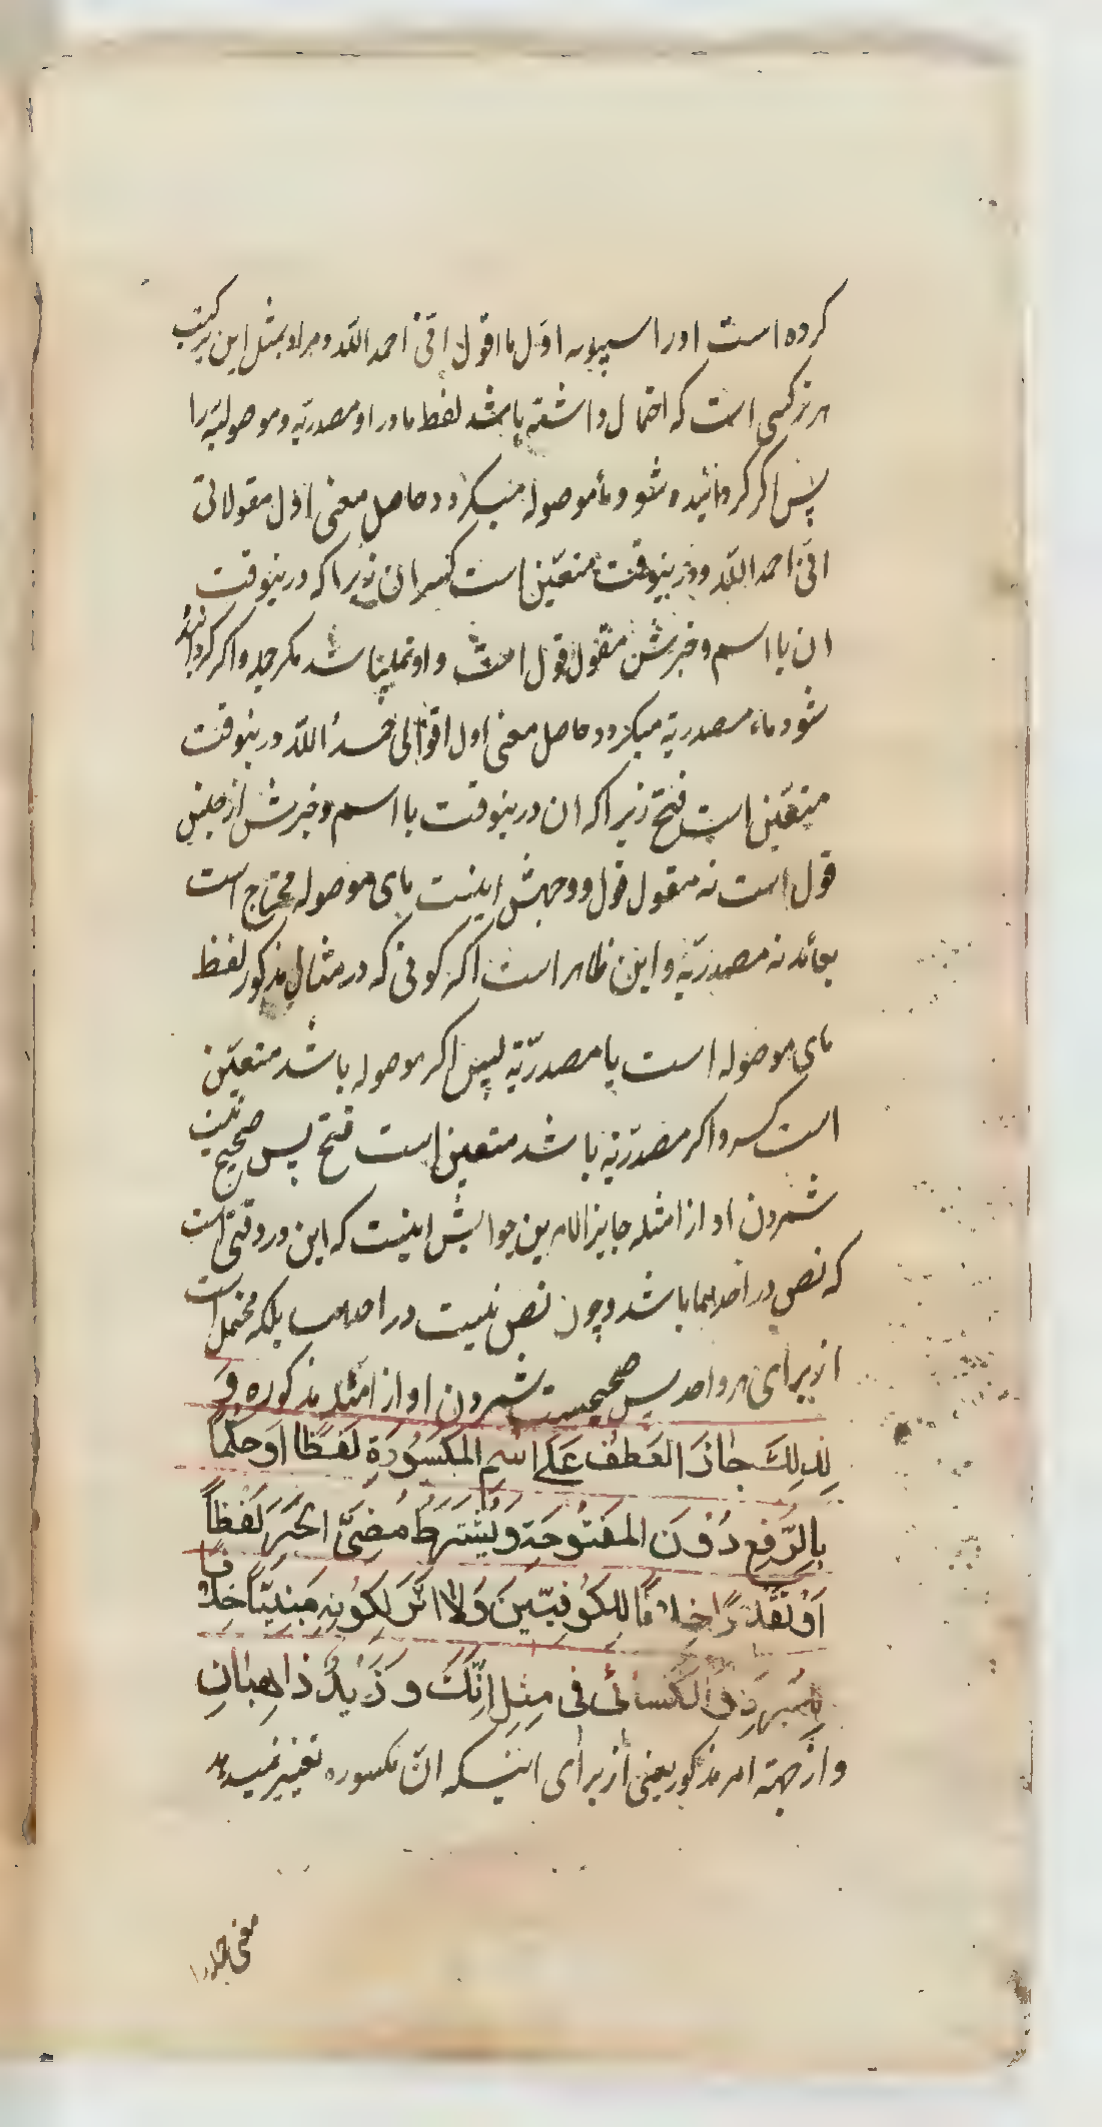 کرده است اورا سیبویه اوّل ما اقول انّی احمد اللّه و مراد بمثل این ترکیب
هر ترکیبی است که احتمال داشته باشد لفظ ما در او مصدریّه و موصولیّه را
پس اکر کردانیده شود ما موصوله میکردد حاصل معنی اوّل مقولاتی
انّی احمد اللّه و درینوقت متعیّن است کسر ان زیرا که درینوقت
ان با اسم و خبرش مقول قول است و او نمیباشد مکر جمله و اکر کردانیده
شود ماء مصدریّه میکردد حاصل معنی اول اقوالی حمدُ اللّه درینوقت
متعیّن است فتح زیرا که ان درینوقت با اسم و خبرش از جنس
قول است نه مقول قول و وجهش اینست مای موصوله محتاج است
بعائد نه مصدریّه و این ظاهر است اکر کوئی که در مثال مذکور لفظ
مای موصوله است یا مصدریّه پس اکر موصوله باشد متعیّن
است کسر و اکر مصدریّه باشد متعین است فتح پس صحیح نیست
شمردن او از امثله جایز الامرین جوابش اینست که این در وقتی است
که نص در احدهما باشد و چون نص نیست در احدهما بلکه محتمل است
از برای هر واحد پس صحیحست شمردن او از امثله مذکوره وَ
لِذلِكَ جازَ العَطفُ عَلَی اسمِ المَكسُورَةِ لَفظًا اَو حُكمًا
بِالرَّفعِ دُونَ المَفتُوحَةِ وَيُشتَرَطُ مُضِیُّ الخَبَرِ لَفظاً
اَو تَقدیرًا خِلافًا لِلكُوفِیّینَ وَلا اَثَرَ لِكَونِهِ مَبنِیًّا خِلافًا
لِلمُبَرَّدِ وَ الكَسائیّ فی مِثلِ اِنَّكَ وَ زَیدٌ ذاهِبانِ
و از جهة امر مذکور یعنی از برای اینکه انّ مکسوره تغییر نمیدهد
معنی جمله را